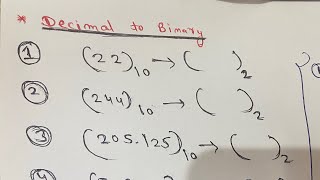 * Decimal to Binary
1 (22)₁₀ → ( )₂
2 (244)₁₀ → ( )₂
3 (205.125)₁₀ → ( )₂